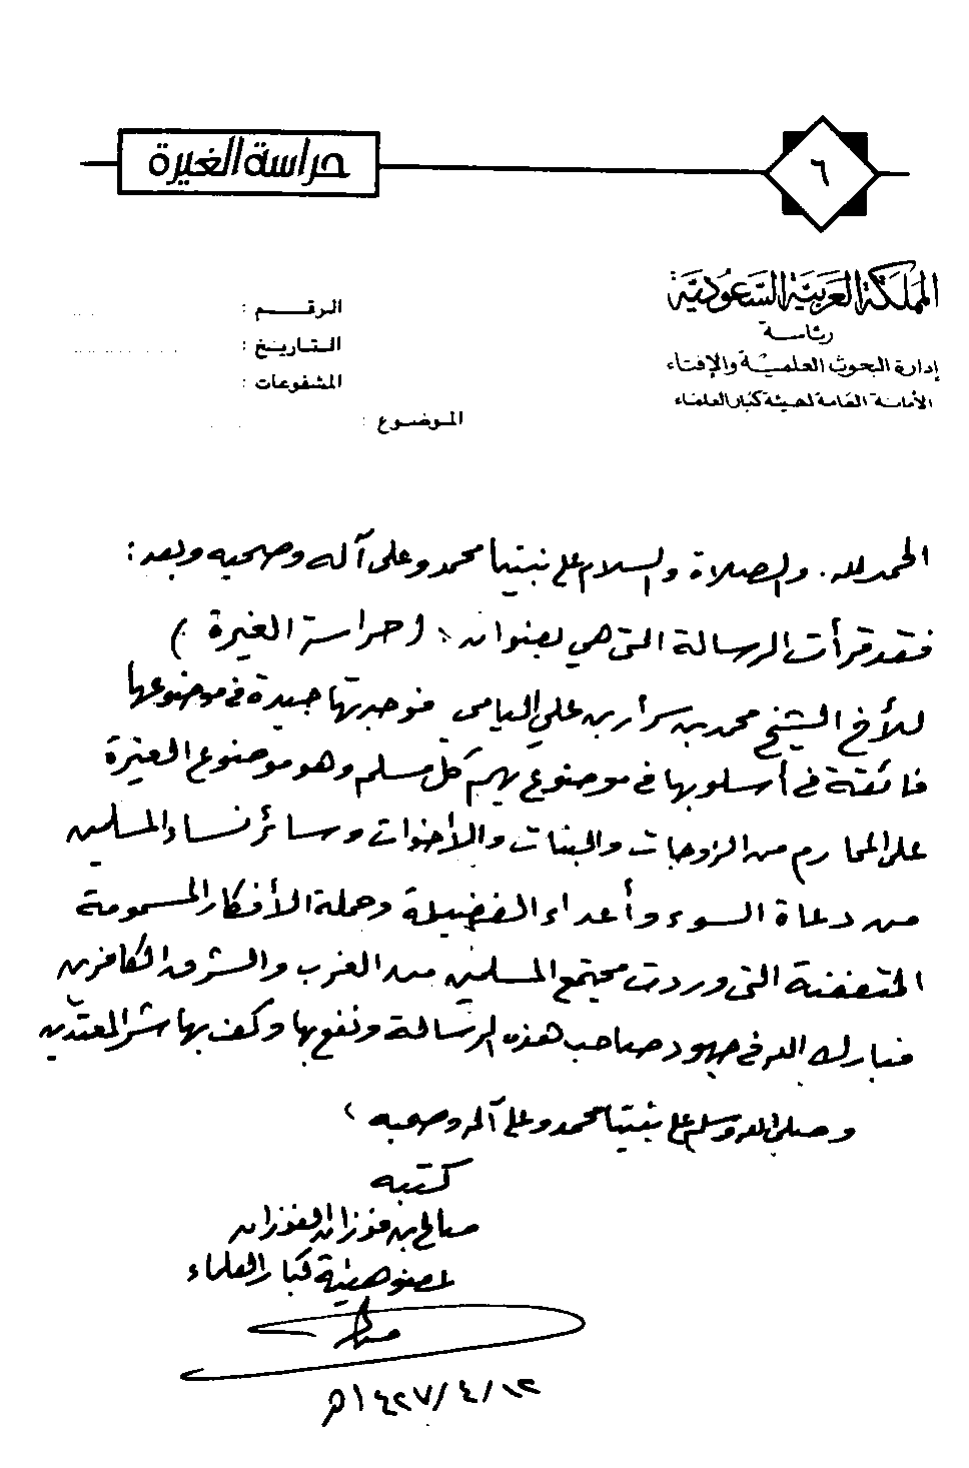 حراسة الغيرة
٦
المملكة العربية السعودية
رئاسة
إدارة البحوث العلمية والإفتاء
الأمانة العامة لهيئة كبار العلماء
الرقم :
التاريخ :
المشفوعات :
الموضوع :
الحمد لله. والصلاة والسلام على نبينا محمد وعلى آله وصحبه وبعد :
فقد قرأت الرسالة التي هي بعنوان : ( حراسة الغيرة )
للأخ الشيخ محمد بن سرار بن علي اليامي فوجدتها جيدة في موضوعها
فائقة في أسلوبها في موضوع يهم كل مسلم وهو موضوع الغيرة
على المحارم من الزوجات والبنات والأخوات وسائر نساء المسلمين
من دعاة السوء وأعداء الفضيلة وحملة الأفكار المسمومة
المتعفنة التي وردت مجتمع المسلمين من الغرب والشرق الكافرين
فبارك الله في جهود صاحب هذه الرسالة ونفع بها وكف بها شر المعتدين
وصلى الله وسلم على نبينا محمد وعلى آله وصحبه ،
كتبه
صالح بن فوزان الفوزان
عضو هيئة كبار العلماء
صالح
١٢/٤/١٤٢٧هـ